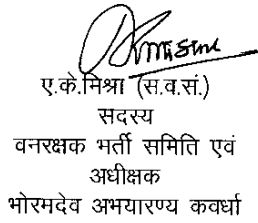 ए.के.मिश्रा (स.व.सं.)
सदस्य
वनरक्षक भर्ती समिति एवं
अधीक्षक
भोरमदेव अभयारण्य कवर्धा